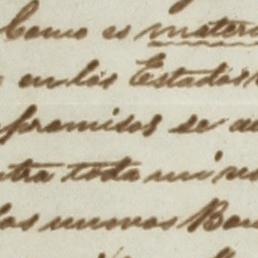 Como es mater
en los Estados
promisos se
tra toda mi
los nuevos Bon